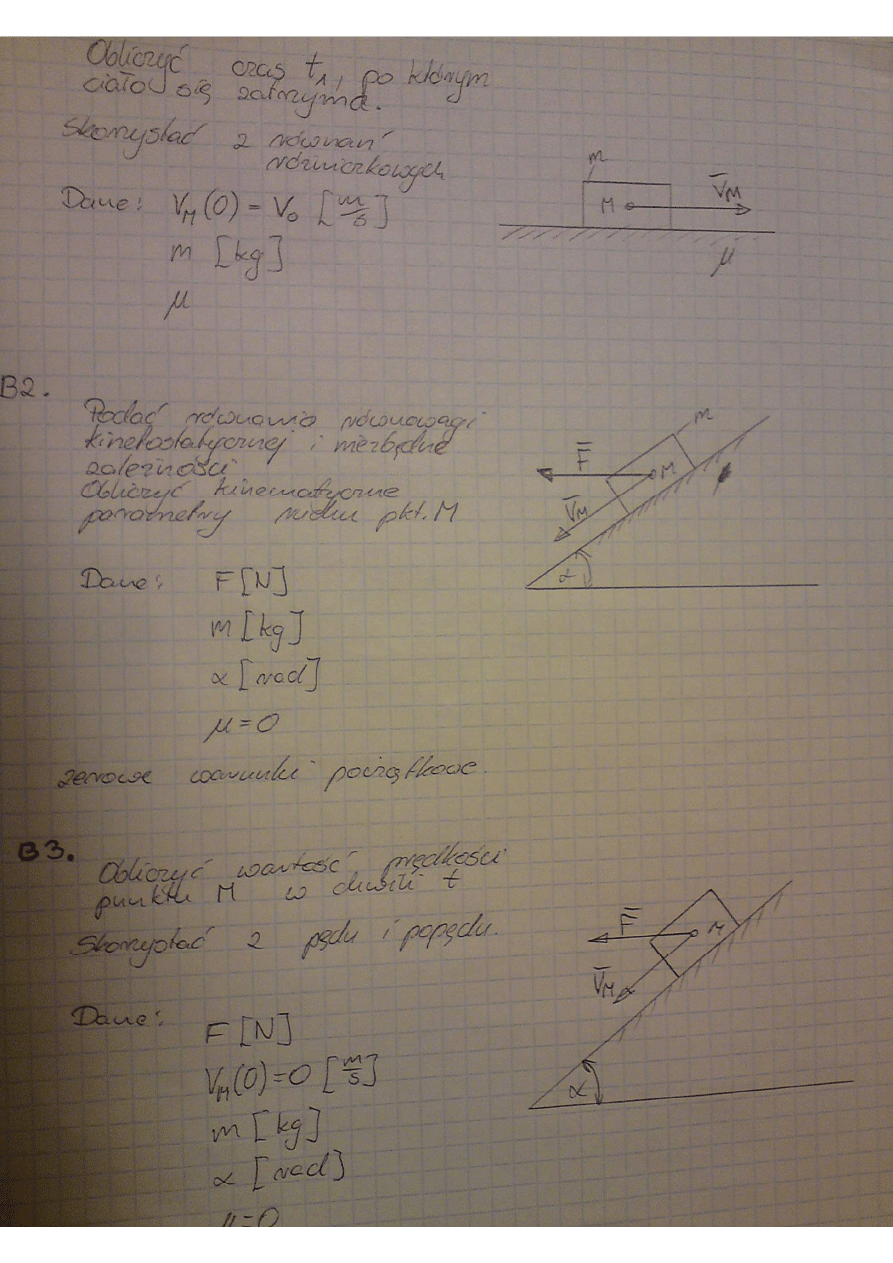 Obliczyć czas t₁, po którym
ciało się zatrzyma.
Skorzystać z równań
różniczkowych
Dane: V_M(0) = V₀ [m/s]
m [kg]
μ
m
M
V̅_M
μ
B2.
Podać równania równowagi
kinetostatycznej i niezbędne
zależności
Obliczyć kinematyczne
parametry ruchu pkt. M
m
F̅
M
V̅_M
α
Dane: F [N]
m [kg]
α [rad]
μ = 0
zerowe warunki początkowe.
B3.
Obliczyć wartość prędkości
punktu M w chwili t
Skorzystać z pędu i popędu.
F̅
M
V̅_M
α
Dane: F [N]
V_M(0) = 0 [m/s]
m [kg]
α [rad]
μ = 0